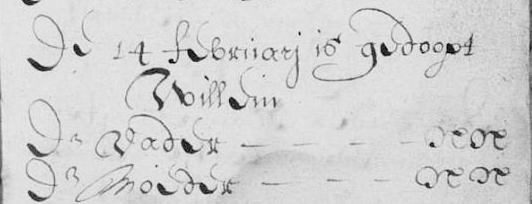 De 14 februarij is gedoopt
Willem
De Vader — — — — NN
De Moeder — — — NN